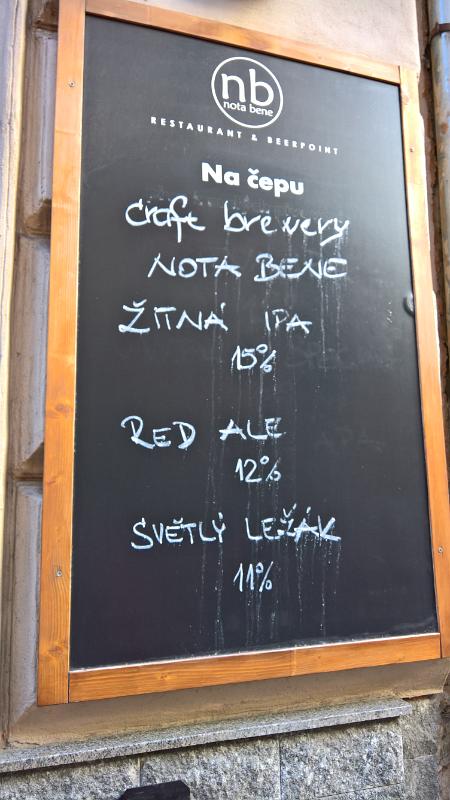 nb
nota bene
RESTAURANT & BEERPOINT
Na čepu
craft brewery
NOTA BENE
ŽITNÁ IPA
15%
RED ALE
12%
SVĚTLÝ LEŽÁK
11%